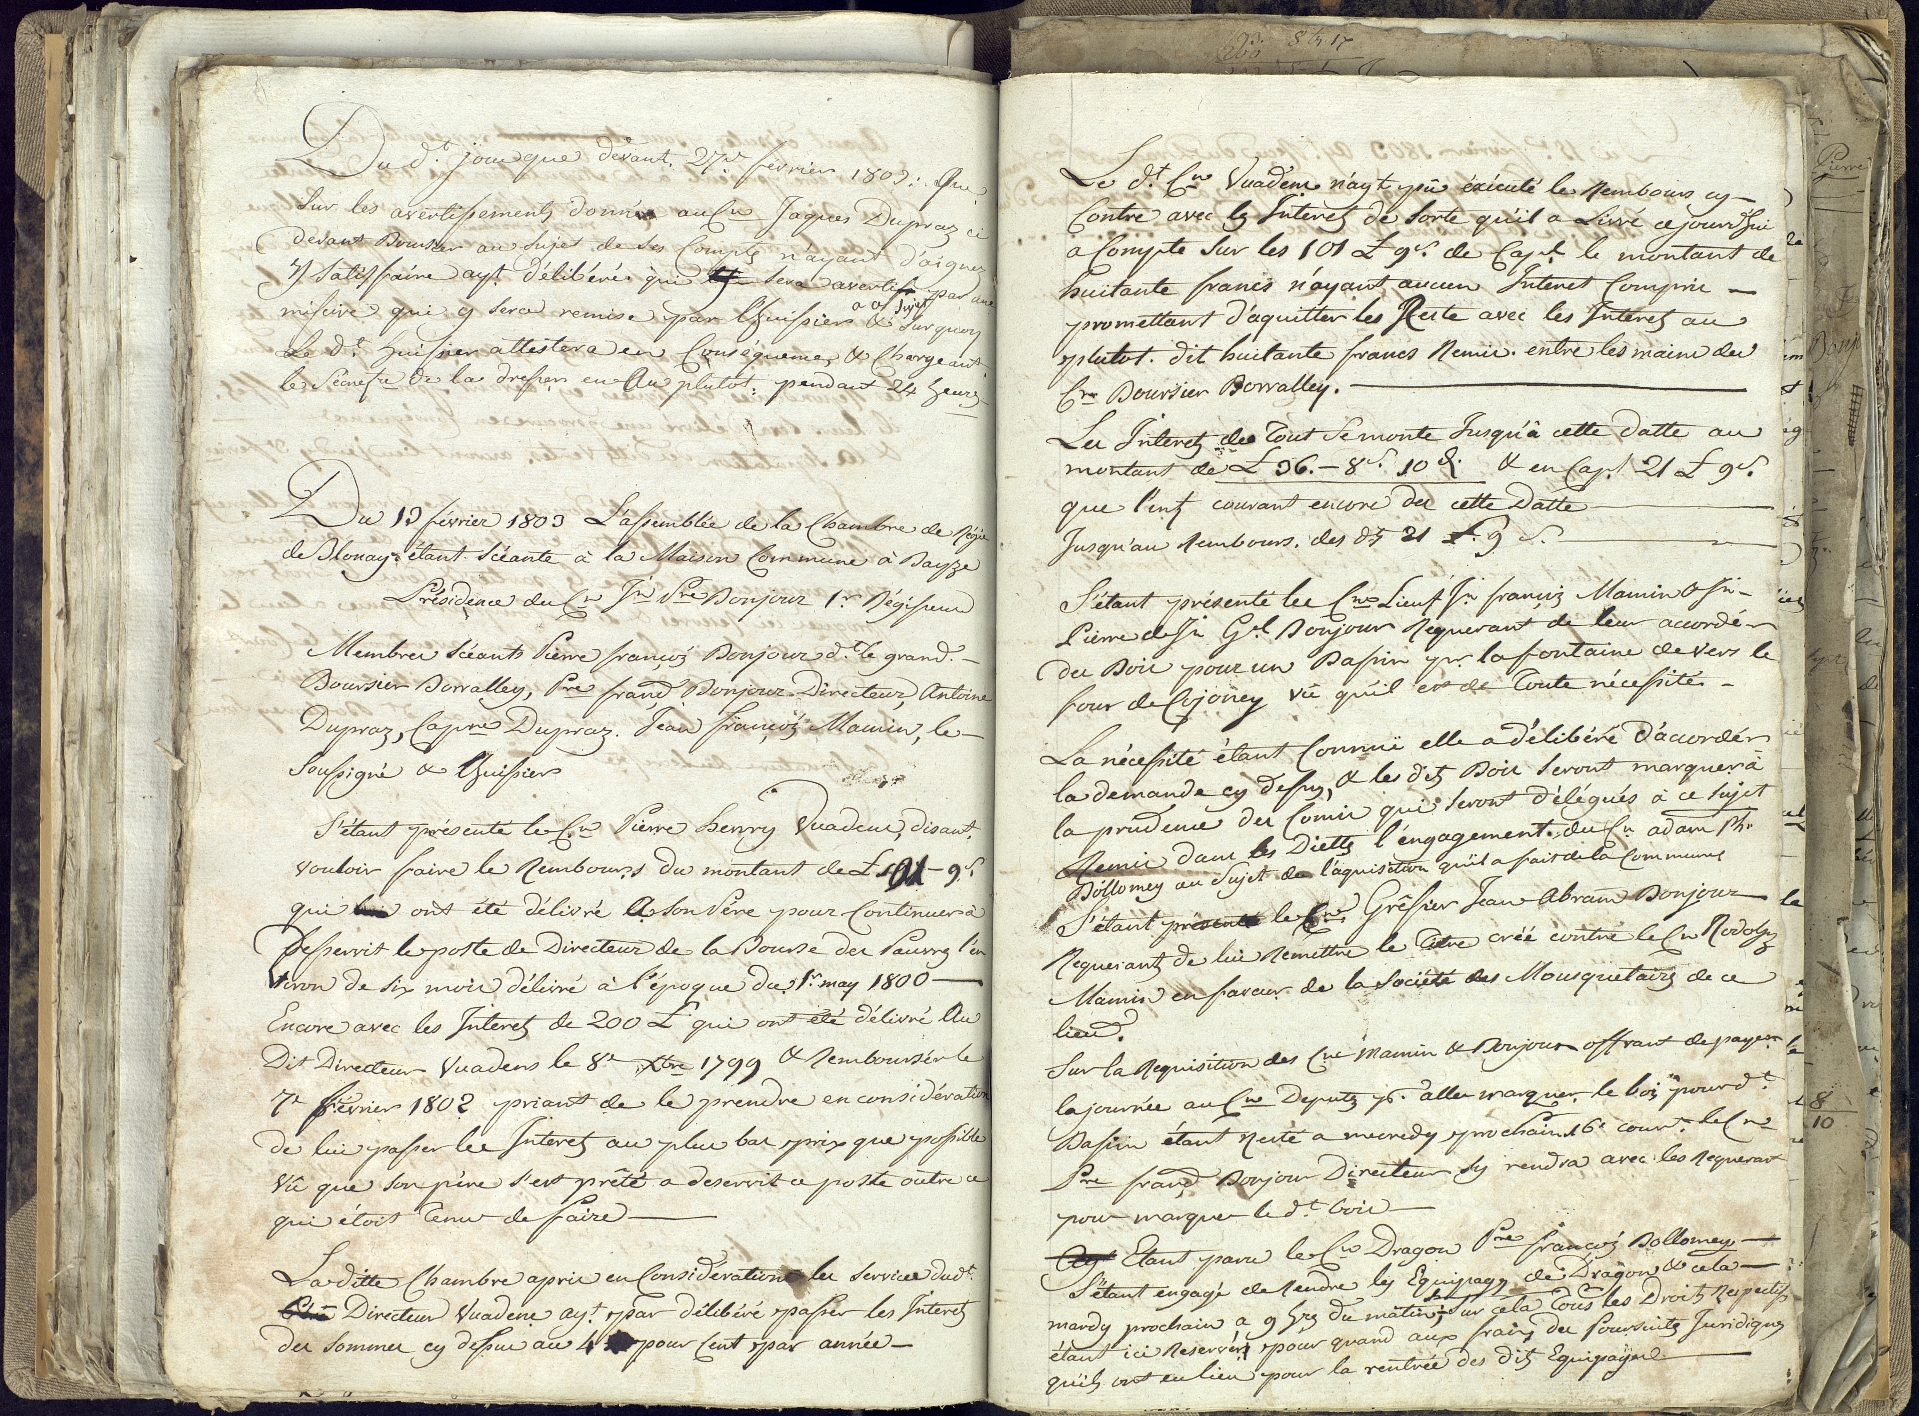 Du d.t jour que devant. 27.e fevrier 1803: Que
Sur les avertissements donnés au Cn Jaques Dupraz ci
devant Boursier au Sujet de Ses Compte n'ayant d'aigner
y Satisfaire ayt. délibéré qui sera avertis par une
missive qui y sera remise par l'huissier & Surquoy
Le d.t huissier attestera en Conséquence, & Chargeant
le Secret.re de la dresser en Au plutot. pendant 24 heures
Du 13 février 1803 L'assemblée de la Chambre de Régie
de Blonay étant Séante à la Maison Commune à Bayze
Présidence du Cn Jn Pre Bonjour 1.r Régisseur
Membres Séants Pierre françois Bonjour d.t le grand.
Boursier Borralley, Pre franç Bonjour Directeur, Antoine
Dupraz, Capne Dupraz. Jean françois Mamin, le
Soussigné & Huissier
S'étant présenté le Cn Pierre henry Vuadens, disant
vouloir faire le Rembours du montant de £ 101 - 9 s.
qui ont été délivré A Son Père pour Continuer à
desservit le poste de Directeur de la Bourse des Pauvres l'en
viron de six mois délivré à l'époque du 1.r may 1800
Encore avec les Interets de 200 £ qui ont été délivré Au
Dit Directeur Vuadens le 8.e Xbre 1799 & Rembourser le
7.e février 1802 priant de le prendre en considération
de lui passer les Interets au plus bas prix que possible
Vû que son père s'est prêté a deservit ce poste outre ce
qui étoit Tenu de faire
La ditte Chambre apris en Considération les Services dud.t
Directeur Vuadens ay.t par délibéré passer les Interets
des Sommes cy dessus au 4 pour Cent par année
Le d.t Cn Vuadens n'ayt pû éxécuté le Rembours cy
Contre avec les Interets de Sorte qu'il a Livré ce jourd'hui
a Compte Sur les 101 £ 9 s. de Cap.l le montant de
huitante francs n'ayant aucun Interet Compris
promettant d'aquitter les Reste avec les Interets au
plutot. dit huitante francs Remis entre les mains du
Cn Boursier Borralley.
Les Interets du Tout Se monte Jusqu'à cette datte au
montant de £ 36. - 8 s. 10 d. & en Cap.l 21 £ 9 s.
que l'int courant encore du cette Datte
Jusqu'au Rembours. des dts 21 £ 9 s.
S'étant présenté les Cns Lieut Jn françois Mamin & Jn
Pierre de Jn G.l Bonjour Requerant de leur accordér
du Bois pour un Bassin pr. la fontaine de vers le
four de Cojoney vû qu'il est de Toute nécessité
La nécessité étant Connuë elle a délibéré d'accordér
la demande cy dessus, & les dits Bois Seront marquer à
la prudence des Comis qui Seront délégués à ce Sujet
Remis dans les Dietts l'engagement du Cn adam Ph.
Bollomey au Sujet de l'aquisition qu'il a fait de la Commune
S'étant présenté le Cn Grêffier Jean Abram Bonjour
Requerants de lui Remettre le Titre créé contre le Cn Rodolp
Mamin en faveur de la Société des Mousquetaires de ce
lieu.
Sur la Requisition des Cns Mamin & Bonjour offrant de payer
la journée au Cns Deputés pr. aller marquer le bois pour d.t
Bassin étant Resté a mecredy prochain 16.e cour.t le Cn
Pre franç Bonjour Directeur Sy rendra avec les Requerant
pour marquer le d.t bois
Etant paru le Cn Dragon Pre françois Bollomey
S'étant engagé de Rendre les Equipages de Dragon & cela
mardy prochain a 9 hrs du matin, Sur cela Tous les Droits Respectifs
étant ici Reservérs pour quand aux frais des Poursuites Juridiques
qu'ils ont eu lieu pour la rentrée des dits Equipages